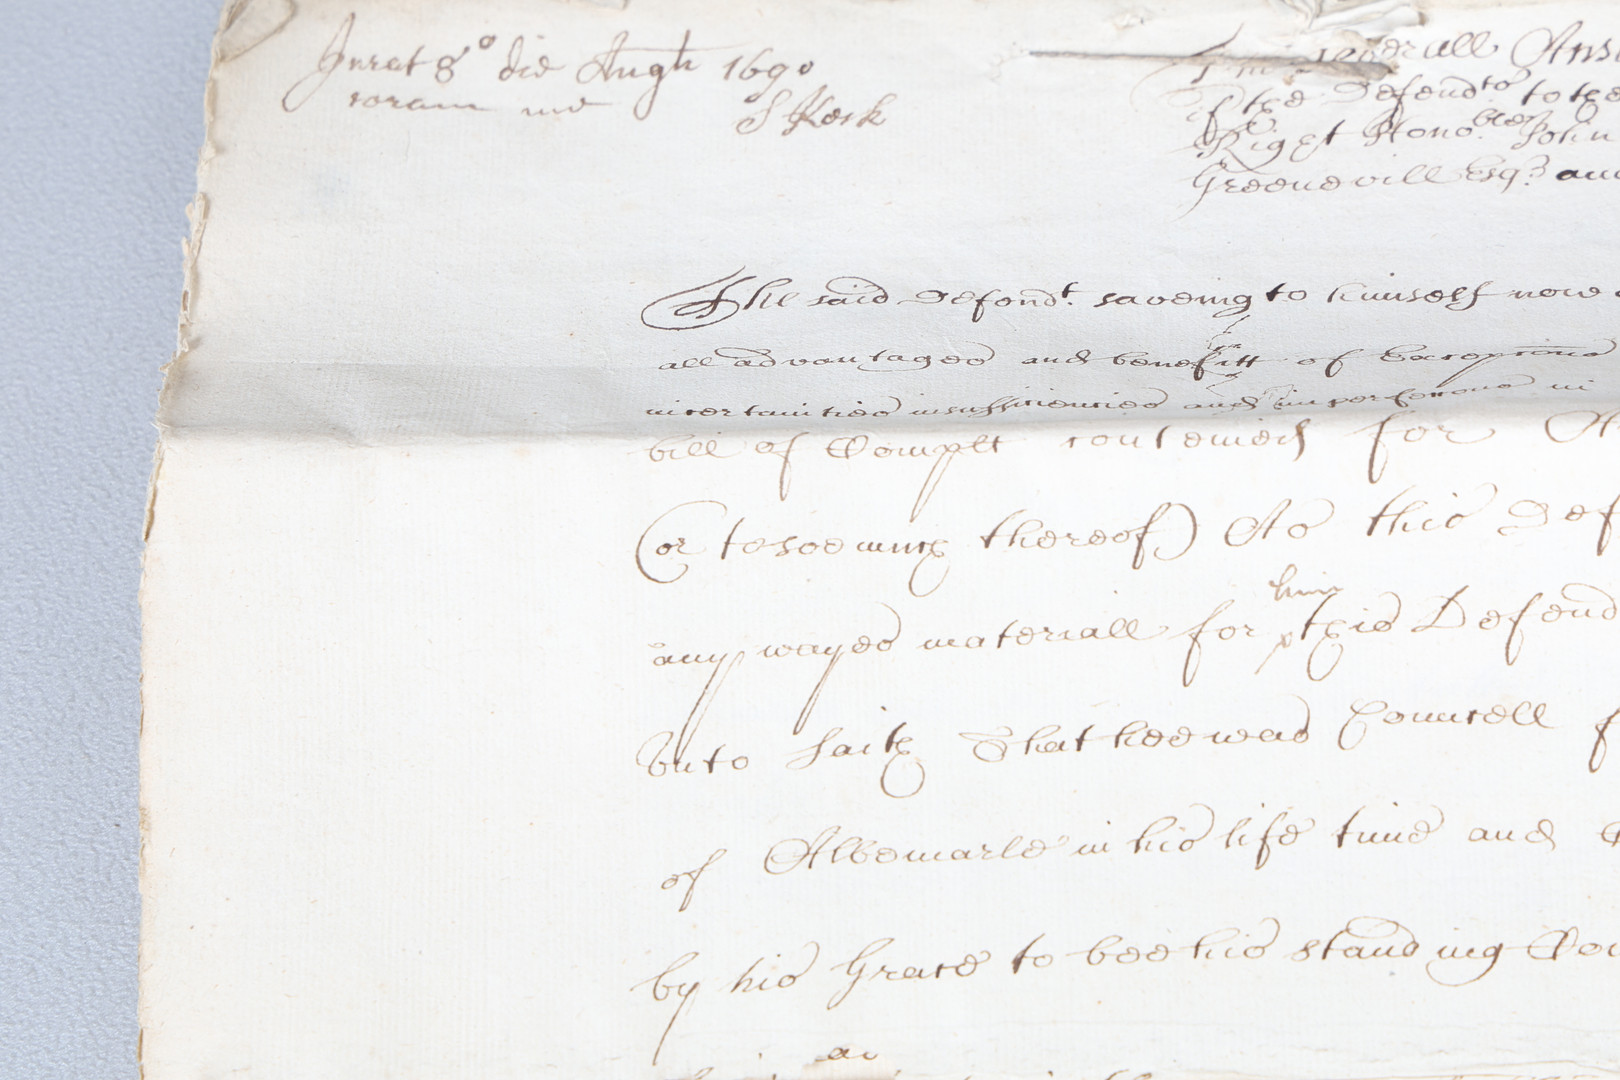 Jurat 8° die Aug 1690
coram me S Keck
The severall Answ
of the Defendts to the
Right Honoble John
Greenevill Esqr. and
The said Defendt. saveing to himself now
all advantages and benefitt of Excepcons
incertainties insufficiencies and imperfeccons in
bill of Complt conteined for
(or soe much thereof) As this Def
any wayes materiall for him this Defend
unto saith That hee was Councell f
of Albemarle in his life time and
by his Grace to bee his standing Cou